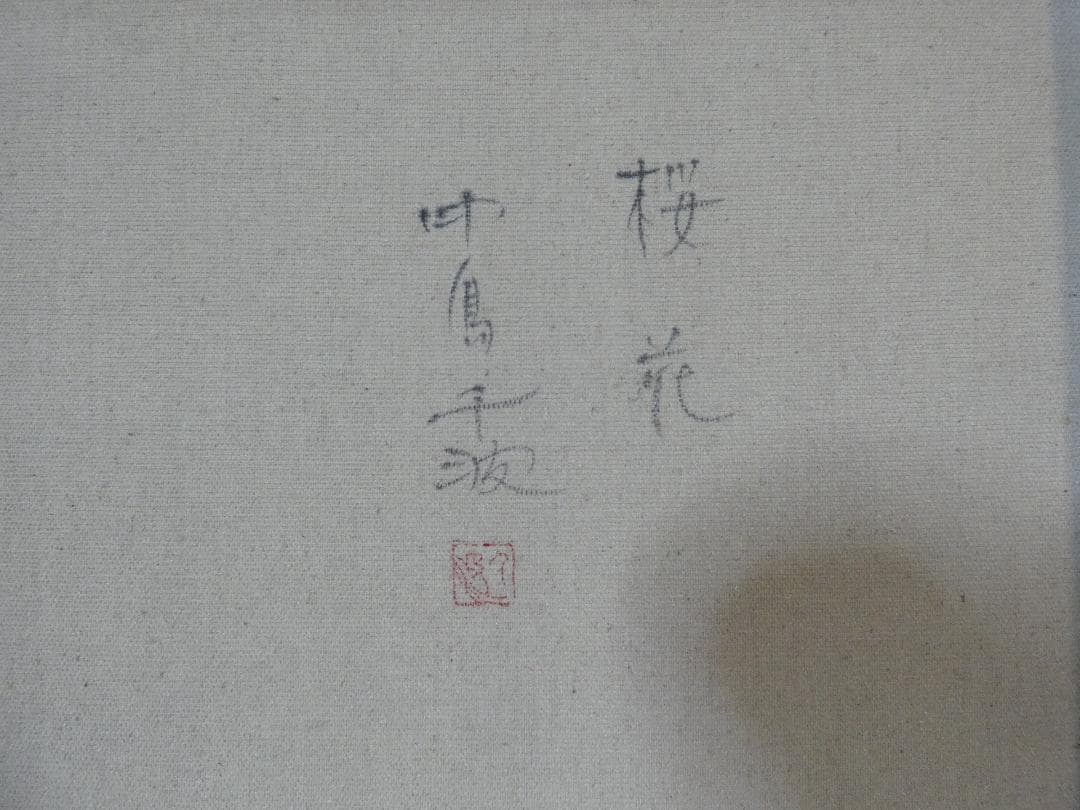 桜花
中島千波